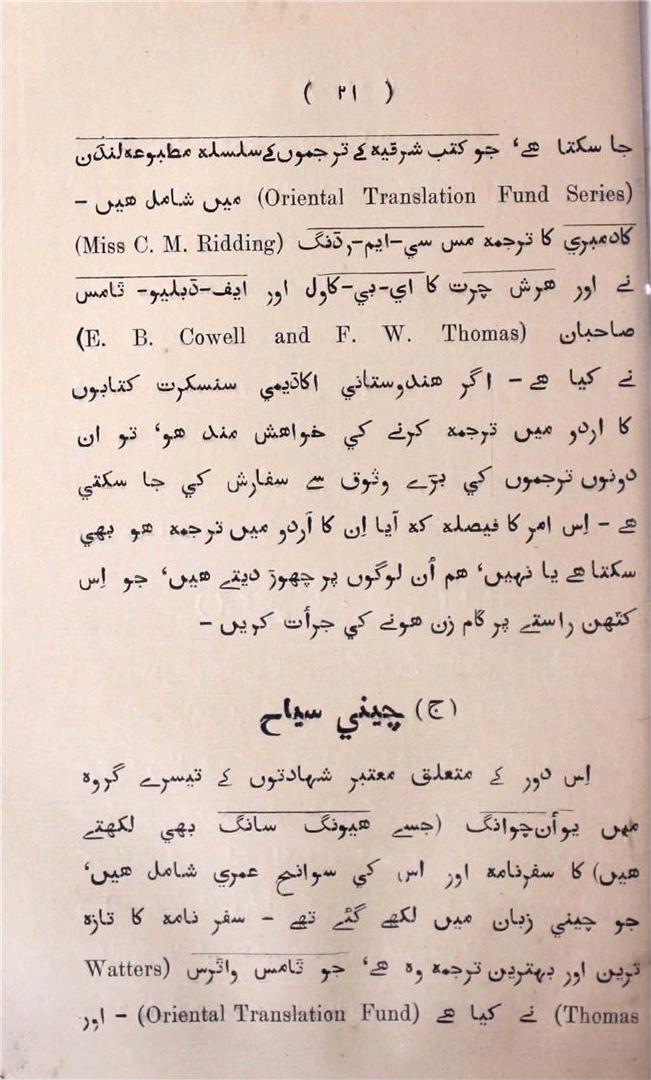 ( ۲۱ )
جا سکتا هے‘ جو کتب شرقیه کے ترجموں کے سلسله مطبوعه لندن
(Oriental Translation Fund Series) میں شامل هیں -
کادمبري کا ترجمه مس سي-ایم-رڈنگ (Miss C. M. Ridding)
نے اور هرش چرت کا اي-بي-کاول اور ایف-ڈبلیو- ٹامس
صاحبان (E. B. Cowell and F. W. Thomas)
نے کیا هے - اگر هندوستاني اکاڈیمي سنسکرت کتابوں
کا اردو میں ترجمه کرنے کي خواهش مند هو‘ تو ان
دونوں ترجموں کي بڑے وثوق سے سفارش کي جا سکتي
هے - اِس امر کا فیصله که آیا اِن کا اُردو میں ترجمه هو بھي
سکتا هے یا نهیں‘ هم اُن لوگوں پر چھوڑ دیتے هیں‘ جو اِس
کٹھن راستے پر گام زن هونے کي جرأت کریں -
(ج) چیني سیاح
اِس دور کے متعلق معتبر شهادتوں کے تیسرے گروه
میں یوأن چوانگ (جسے هیونگ سانگ بھي لکھتے
هیں) کا سفرنامه اور اس کي سوانح عمري شامل هیں‘
جو چیني زبان میں لکھے گئے تھے - سفر نامه کا تازه
ترین اور بهترین ترجمه وه هے‘ جو ٹامس واٹرس (Watters
Thomas) نے کیا هے (Oriental Translation Fund) - اور